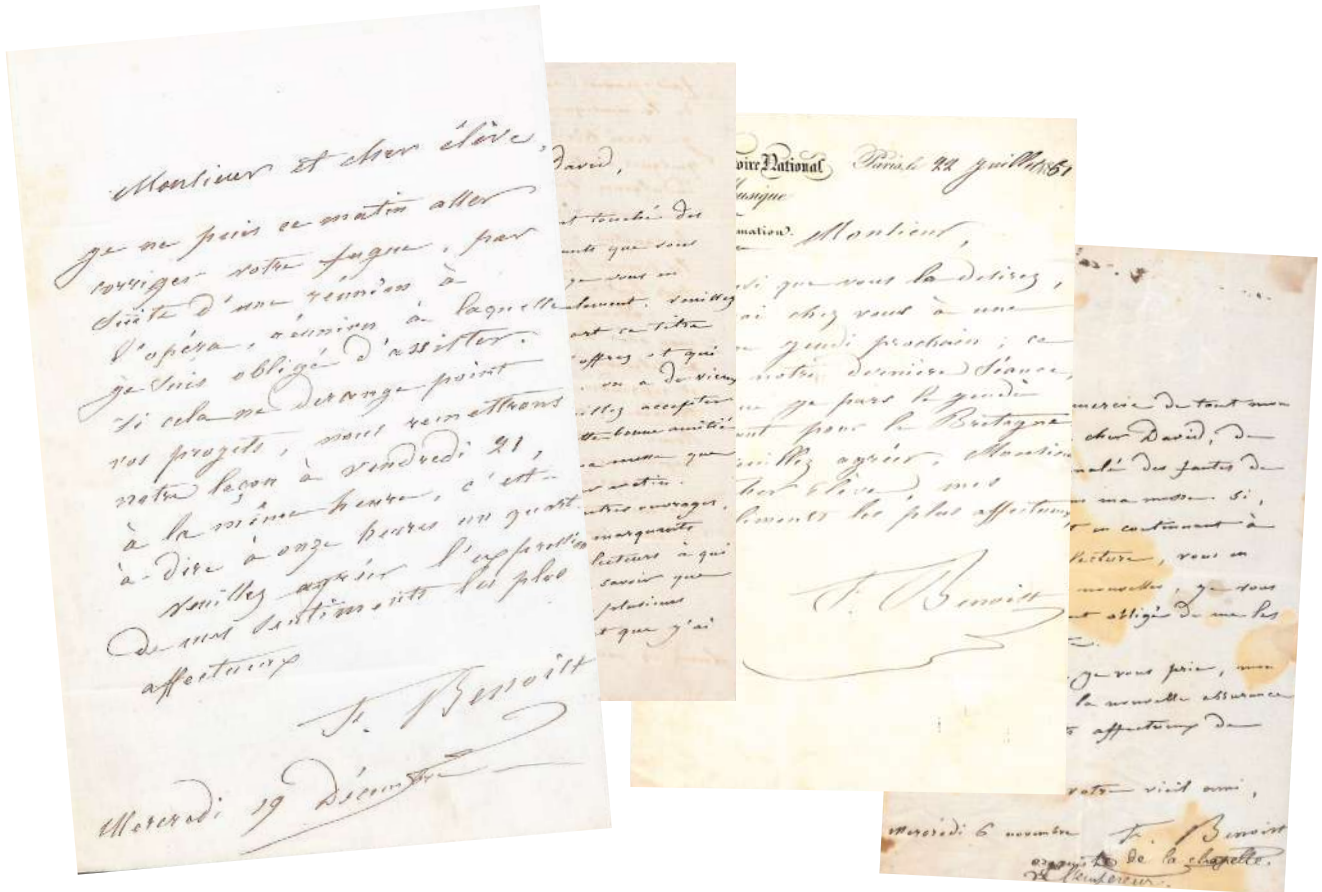 Monsieur et cher élève,
je ne puis ce matin aller
corriger votre fugue, par
suite d'une réunion à
l'opéra, réunion à laquelle
je suis obligé d'assister.
Si cela ne derange point
vos projets, nous remettrons
notre leçon à vendredi 21,
à la même heure, c'est-
à-dire à onze heures un quart.
Veuillez agréer l'expression
de mes sentiments les plus
affectueux
F. Benoist
Mercredi 19 Décembre
David,
touché des
que vous
je vous en
veuillez
ce titre
offrez et qui
on a de vieux
accepter
bonne amitié
ma messe que
ouvrages,
marquants
lecteurs à qui
savoir que
plusieurs
que j'ai
oire National
Musique
mation.
Paris, le 22 Juillet 1851
Monsieur,
si que vous la desirez,
ai chez vous à une
jeudi prochain; ce
notre dernière séance,
je pars le jeudi
pour la Bretagne
Veuillez agréer, Monsieur
cher élève, mes
les plus affectueux
F. Benoist
mercie de tout mon
cher David, de
nalé des fautes de
ma messe. Si,
en continuant à
lecture, vous en
nouvelles, je vous
obligé de me les
je vous prie, mon
la nouvelle assurance
affectueux de
votre vieil ami,
Mercredi 6 novembre
F. Benoist
organiste de la chapelle.
de l'empereur.